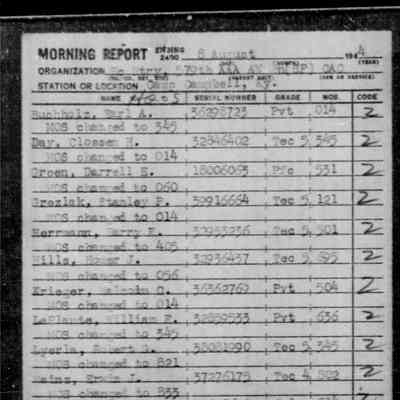 MORNING REPORT ENDING 2400 8 August 194 4
ORGANIZATION Hq Btry, 579th AAA AW Bn (SP) CAC
STATION OR LOCATION Camp Campbell, Ky.
NAME SERIAL NUMBER GRADE MOS. CODE
Buchholz, Earl A. 36298723 Pvt 014 2
MOS changed to 345
Day, Clossen H. 32846402 Tec 5 345 2
MOS changed to 014
Groen, Darrell E. 18006063 Pfc 531 2
MOS changed to 060
Grezlak, Stanley P. 39916664 Tec 5 121 2
MOS changed to 014
Herrmann, Harry E. 32953236 Tec 5 501 2
MOS changed to 405
Hills, Homer J. 32936437 Tec 5 895 2
MOS changed to 056
Krieger, Malcolm C. 36362769 Pvt 504 2
MOS changed to 014
LaPlante, William E. 32859533 Pvt 636 2
MOS changed to 345
Lyerla, Hubert 38081990 Tec 5 345 2
MOS changed to 821
Heinz, J. 37276175 Tec 4 882 2
MOS changed to 833